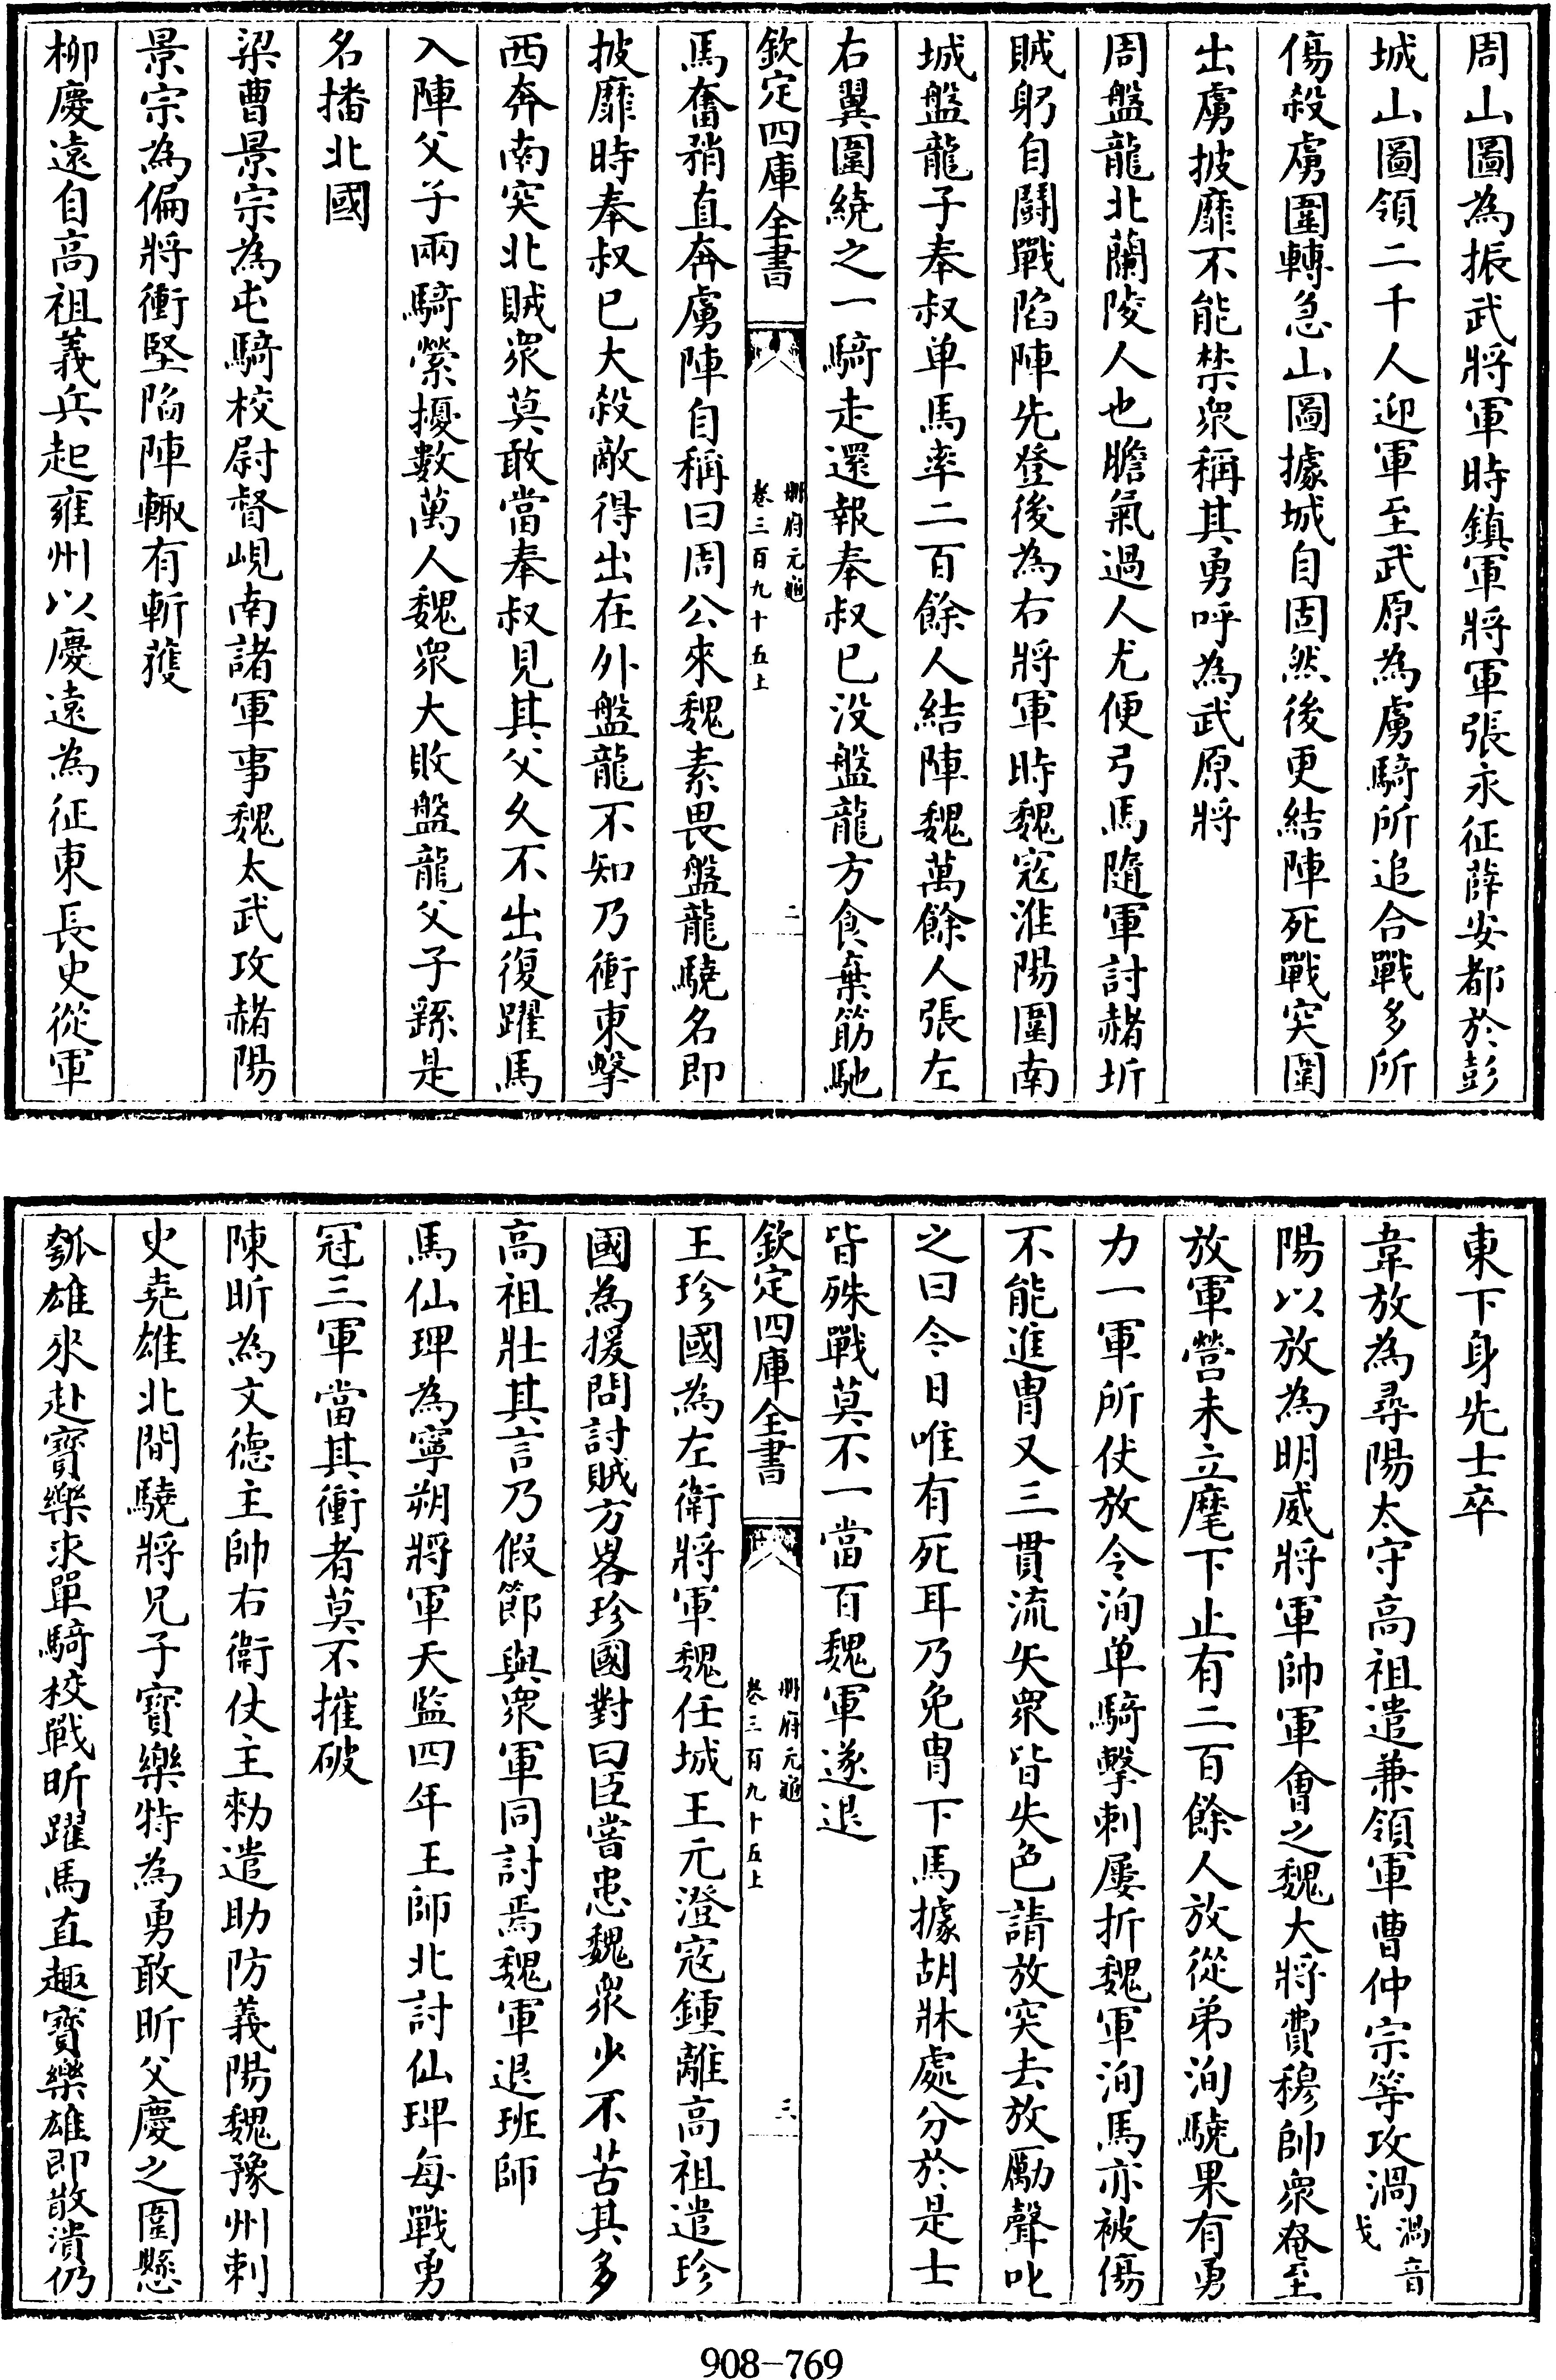 周山圖為振武將軍時鎮軍將軍張永征薛安都於彭
城山圖領二千人迎軍至武原為虜騎所追合戰多所
傷殺虜圍轉急山圖據城自固然後更結陣死戰突圍
出虜披靡不能禁衆稱其勇呼為武原將
周盤龍北蘭陵人也膽氣過人尤便弓馬隨軍討赭圻
賊躬自鬪戰陷陣先登後為右將軍時魏寇淮陽圍南
城盤龍子奉叔单馬率二百餘人結陣魏萬餘人張左
右翼圍繞之一騎走還報奉叔已没盤龍方食棄筯馳
欽定四庫全書
冊府元龜
卷三百九十五上
二
馬奮矟直奔虜陣自稱曰周公來魏素畏盤龍驍名即
披靡時奉叔已大殺敵得出在外盤龍不知乃衝東擊
西奔南突北賊衆莫敢當奉叔見其父久不出復躍馬
入陣父子兩騎縈擾數萬人魏衆大敗盤龍父子繇是
名播北國
梁曹景宗為屯騎校尉督峴南諸軍事魏太武攻赭陽
景宗為偏將衝堅陷陣輙有斬獲
柳慶遠自高祖義兵起雍州以慶遠為征東長史從軍
東下身先士卒
韋放為尋陽太守高祖遣兼領軍曹仲宗等攻渦渦音戈
陽以放為明威將軍帥軍會之魏大將費穆帥衆奄至
放軍營未立麾下止有二百餘人放從弟洵驍果有勇
力一軍所仗放令洵单騎擊刺屢折魏軍洵馬亦被傷
不能進胄又三貫流矢衆皆失色請放突去放勵聲叱
之曰今日唯有死耳乃免胄下馬據胡牀處分於是士
皆殊戰莫不一當百魏軍遂退
欽定四庫全書
冊府元龜
卷三百九十五上
三
王珍國為左衛將軍魏任城王元澄寇鍾離高祖遣珍
國為援問討賊方畧珍國對曰臣嘗患魏衆少不苦其多
高祖壯其言乃假節與衆軍同討焉魏軍退班師
馬仙琕為寧朔將軍天監四年王師北討仙琕每戰勇
冠三軍當其衝者莫不摧破
陳昕為文德主帥右衛仗主勑遣助防義陽魏豫州刺
史堯雄北間驍將兄子寶樂特為勇敢昕父慶之圍懸
瓠雄來赴寶樂求單騎校戰昕躍馬直趣寶樂雄即散潰仍
908-769